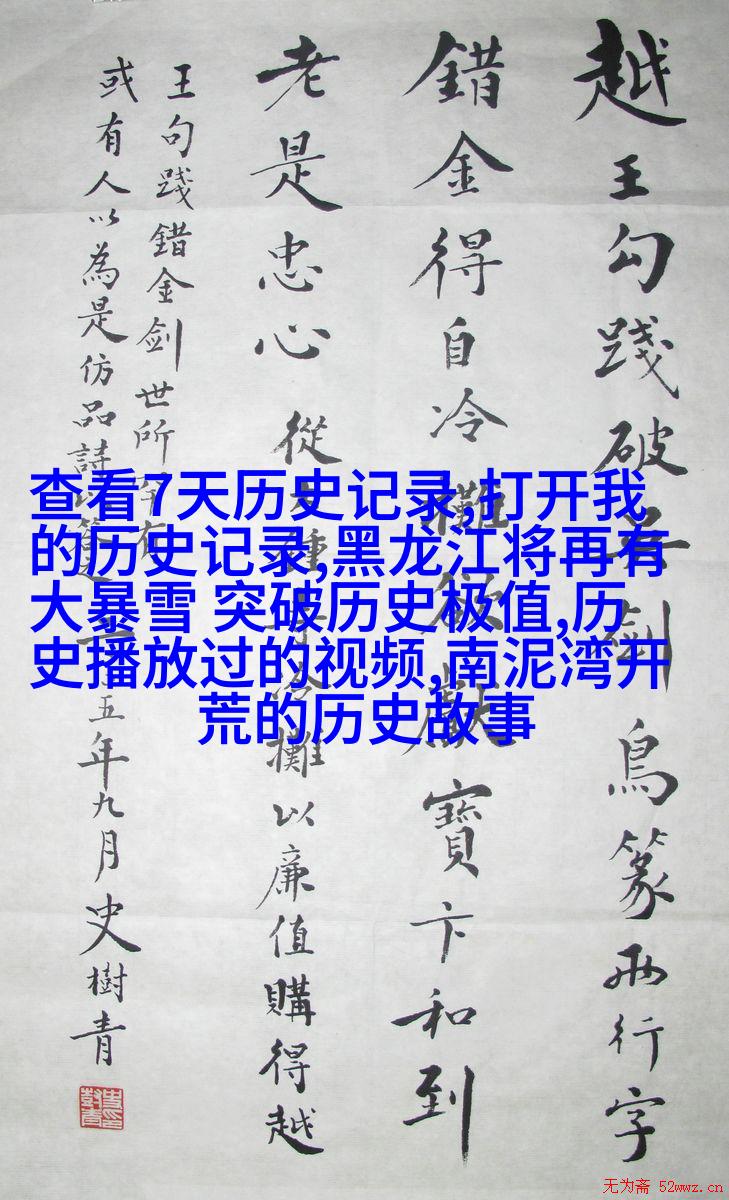 越王勾踐破劍鳥篆兩行字
錯金得自冷攤欲獻寶卞和到
老是忠心 從鐘冷攤以廉值購得越
王句踐錯金劍世所有
或有人以為是仿品詩以五年九月史樹青
查看7天历史记录,打开我
的历史记录,黑龙江将再有
大暴雪 突破历史极值,历
史播放过的视频,南泥湾开
荒的历史故事
无为斋 52wwz.cn